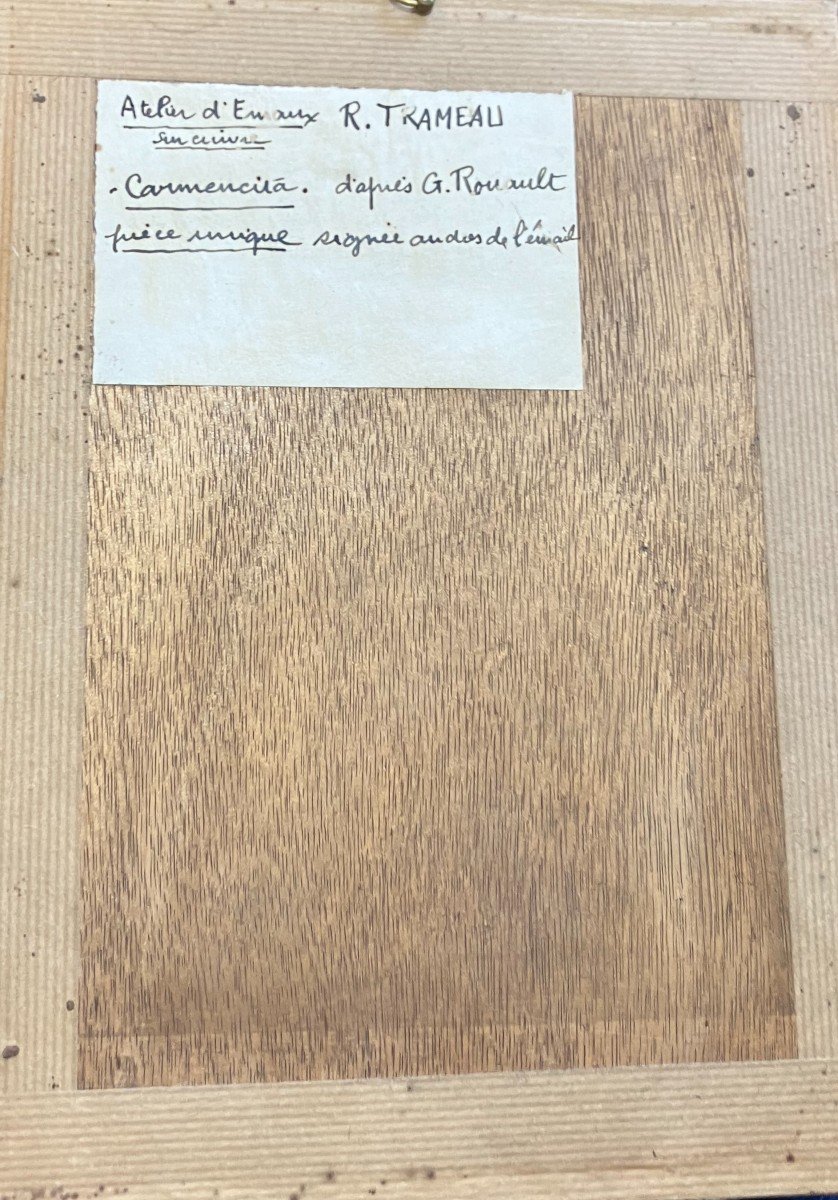 Atelier d'Emaux R. TRAMEAU
sur cuivre
. Carmencita . d'après G. Rouault
pièce unique signée au dos de l'émail